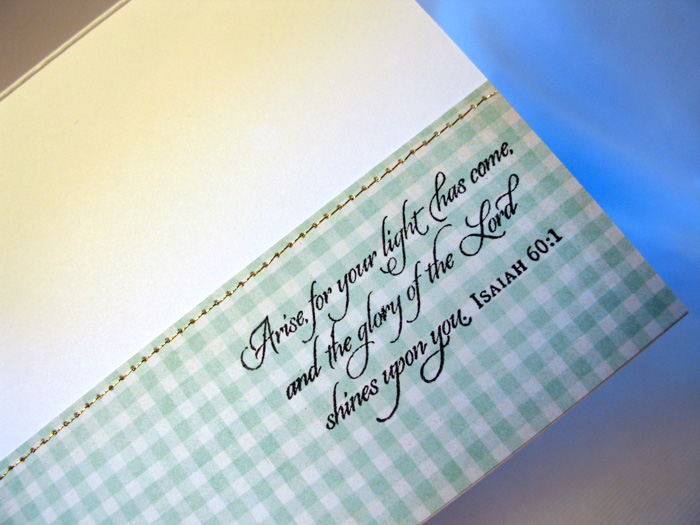 Arise, for your light has come,
and the glory of the Lord
shines upon you. ISAIAH 60:1